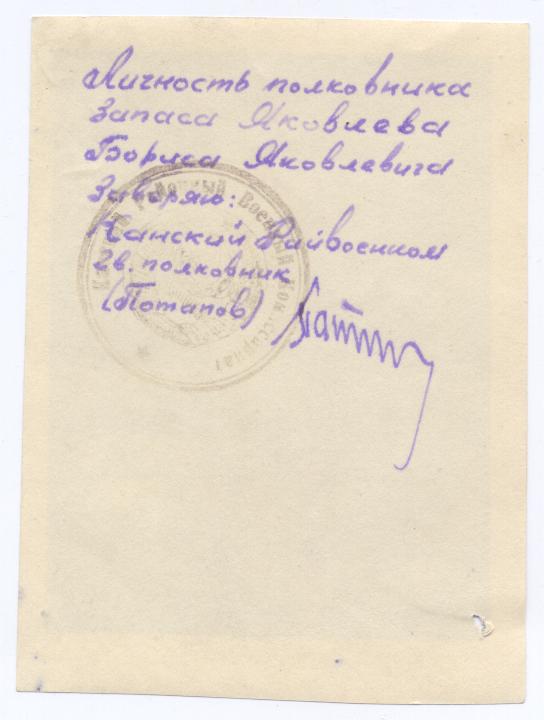 Личность полковника
запаса Яковлева
Бориса Яковлевича
Заверяю:
Канский Райвоенком
гв. полковник
(Потапов)
районный Военный Комиссариат